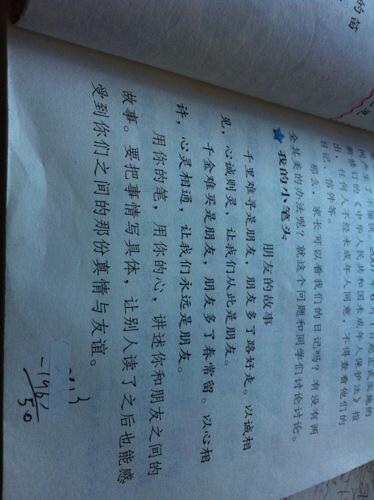 年6月1日起正式实施的
新修订的《中华人民共和国未成年人保护法》指
出，任何人不经未成年人同意，不得查看他们的
日记、信件等。
那么，家长可以看我们的日记吗？有没有两
全其美的办法呢？就这个问题和同学们讨论讨论。
★我的小笔头
朋友的故事
千里难寻是朋友，朋友多了路好走。以诚相
见，心诚则灵，让我们从此是朋友。
千金难买是朋友，朋友多了春常留。以心相
许，心灵相通，让我们永远是朋友。
用你的笔，用你的心，讲述你和朋友之间的
故事。要把事情写具体，让别人读了之后也能感
受到你们之间的那份真情与友谊。
50